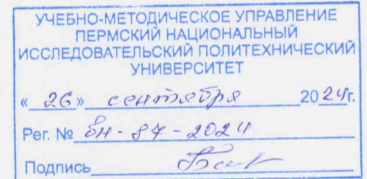 УЧЕБНО-МЕТОДИЧЕСКОЕ УПРАВЛЕНИЕ
ПЕРМСКИЙ НАЦИОНАЛЬНЫЙ
ИССЛЕДОВАТЕЛЬСКИЙ ПОЛИТЕХНИЧЕСКИЙ
УНИВЕРСИТЕТ
«26» сентября 2024г.
Рег. № вн-87-2024
Подпись